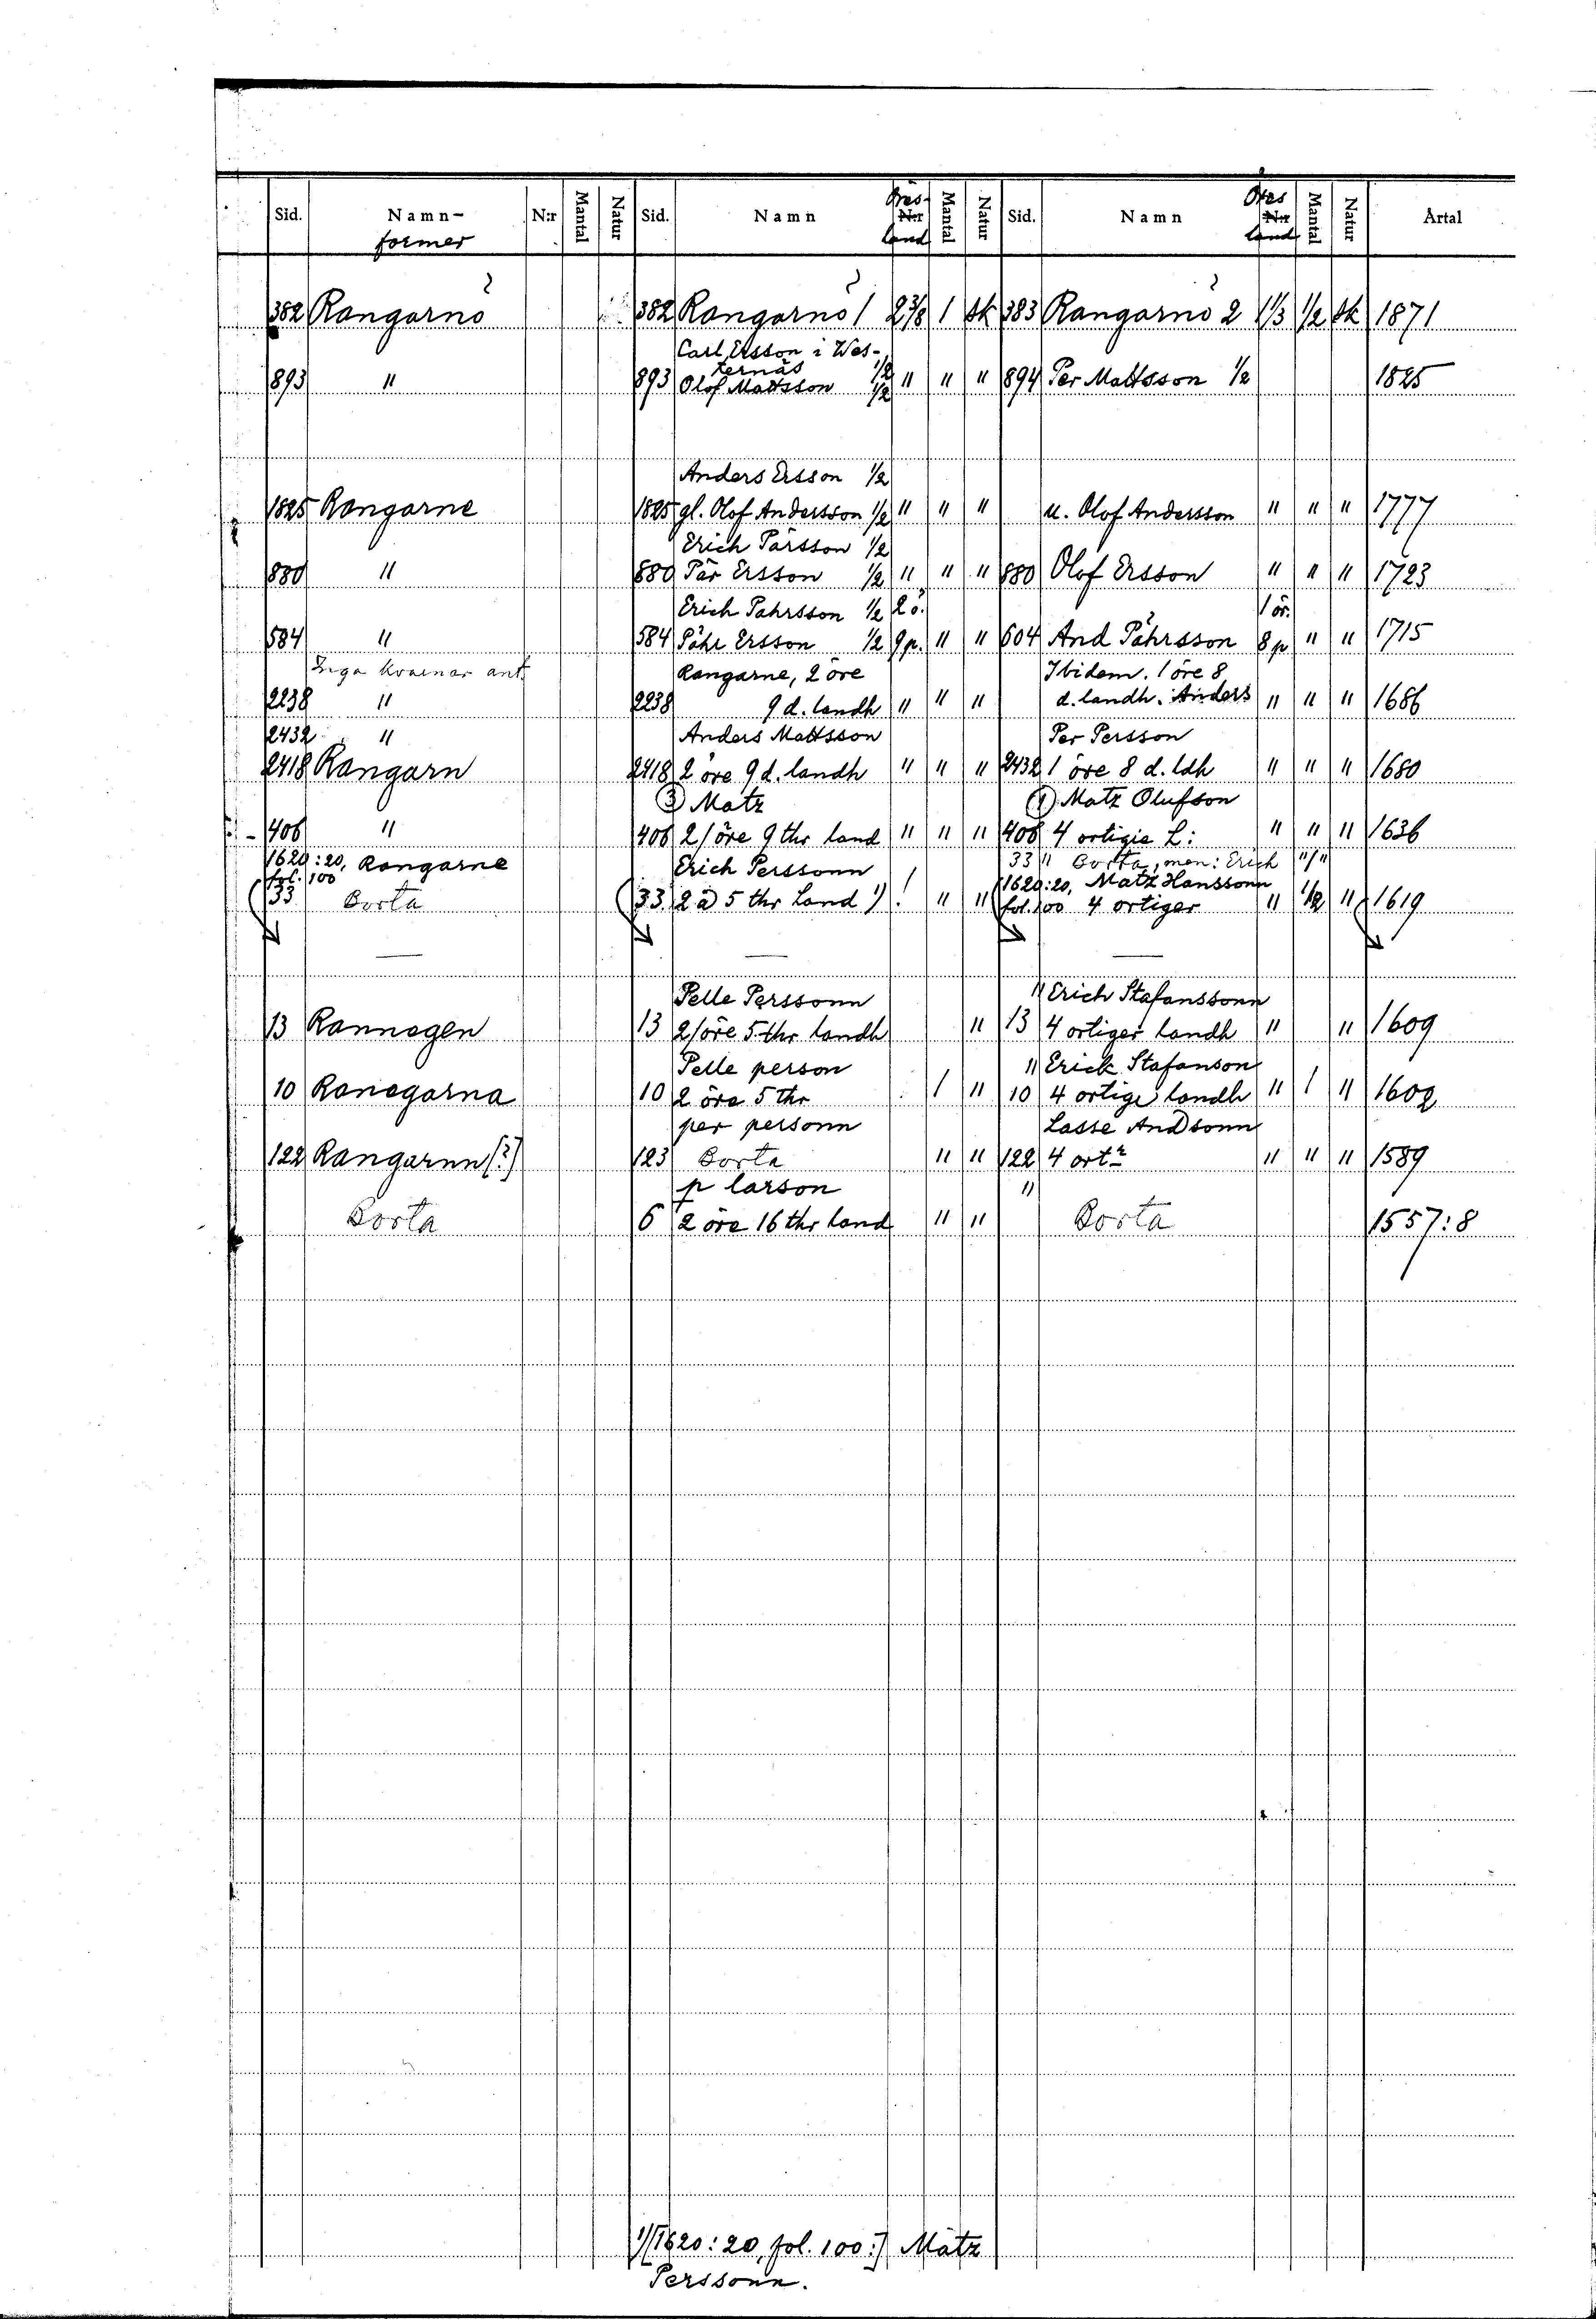 Sid. Namn- N:r Mantal Natur Sid. Namn Öres N:r Mantal Natur Sid. Namn Öres N:r Mantal Natur Årtal
former land land
382 Rangarnö 382 Rangarnö 1 2 3/8 1 sk 383 Rangarnö 2 1 1/3 1/2 sk 1871
Carl Ersson i Wes-
ternäs 1/2
1893 " 893 Olof Mattsson 1/2 " " " 894 Per Mattsson 1/2 1825
Anders Ersson 1/2
1825 Rangarne 1825 gl. Olof Andersson 1/2 " " " u. Olof Andersson " " " 1777
Erich Pärsson 1/2
880 " 880 Pär Ersson 1/2 " " " 880 Olof Ersson " " " 1723
Erich Pährsson 1/2 2 ö. 1 ör.
584 " 584 Pähr Ersson 1/2 9 p. " " 604 And Pährsson 8 p " " 1715
Inga kvarnar ant. Rangarne, 2 öre Ibidem. 1 öre 8
2238 " 2238 9 d. landh " " " d. landh. Anders " " " 1686
2432 " Anders Mattsson Per Persson
2418 Rangarn 2418 2 öre 9 d. landh " " " 2432 1 öre 8 d. ldh " " " 1680
Matz Matz Olufson
406 " 406 2/öre 9 thr land " " " 406 4 ortigie L: " " " 1636
1620:20, Rangarne Erich Perssonn 33 " Borta, men: Erich "/"
fol. 100 1620:20, Matz Hanssonn
(33 Borta (33 2 ö 5 thr Land 1) ! " " fol. 100 4 ortiger " 1/2 " 1619
Pelle Perssonn " Erich Stafanssonn
13 Rannegen 13 2/öre 5 thr landh " 13 4 ortiger landh " " 1609
Pelle person " Erick Stafanson
10 Ranegarna 10 2 öre 5 thr 1 " 10 4 ortige landh " 1 " 1602
per personn Lasse Andsonn
122 Rangarnn (?) 123 Borta " " 122 4 ortr " " " 1589
p larson "
Borta 6 2 öre 16 thr land " " Borta 1557:8
1/(1620:20, fol. 100:) Matz
Perssonn.